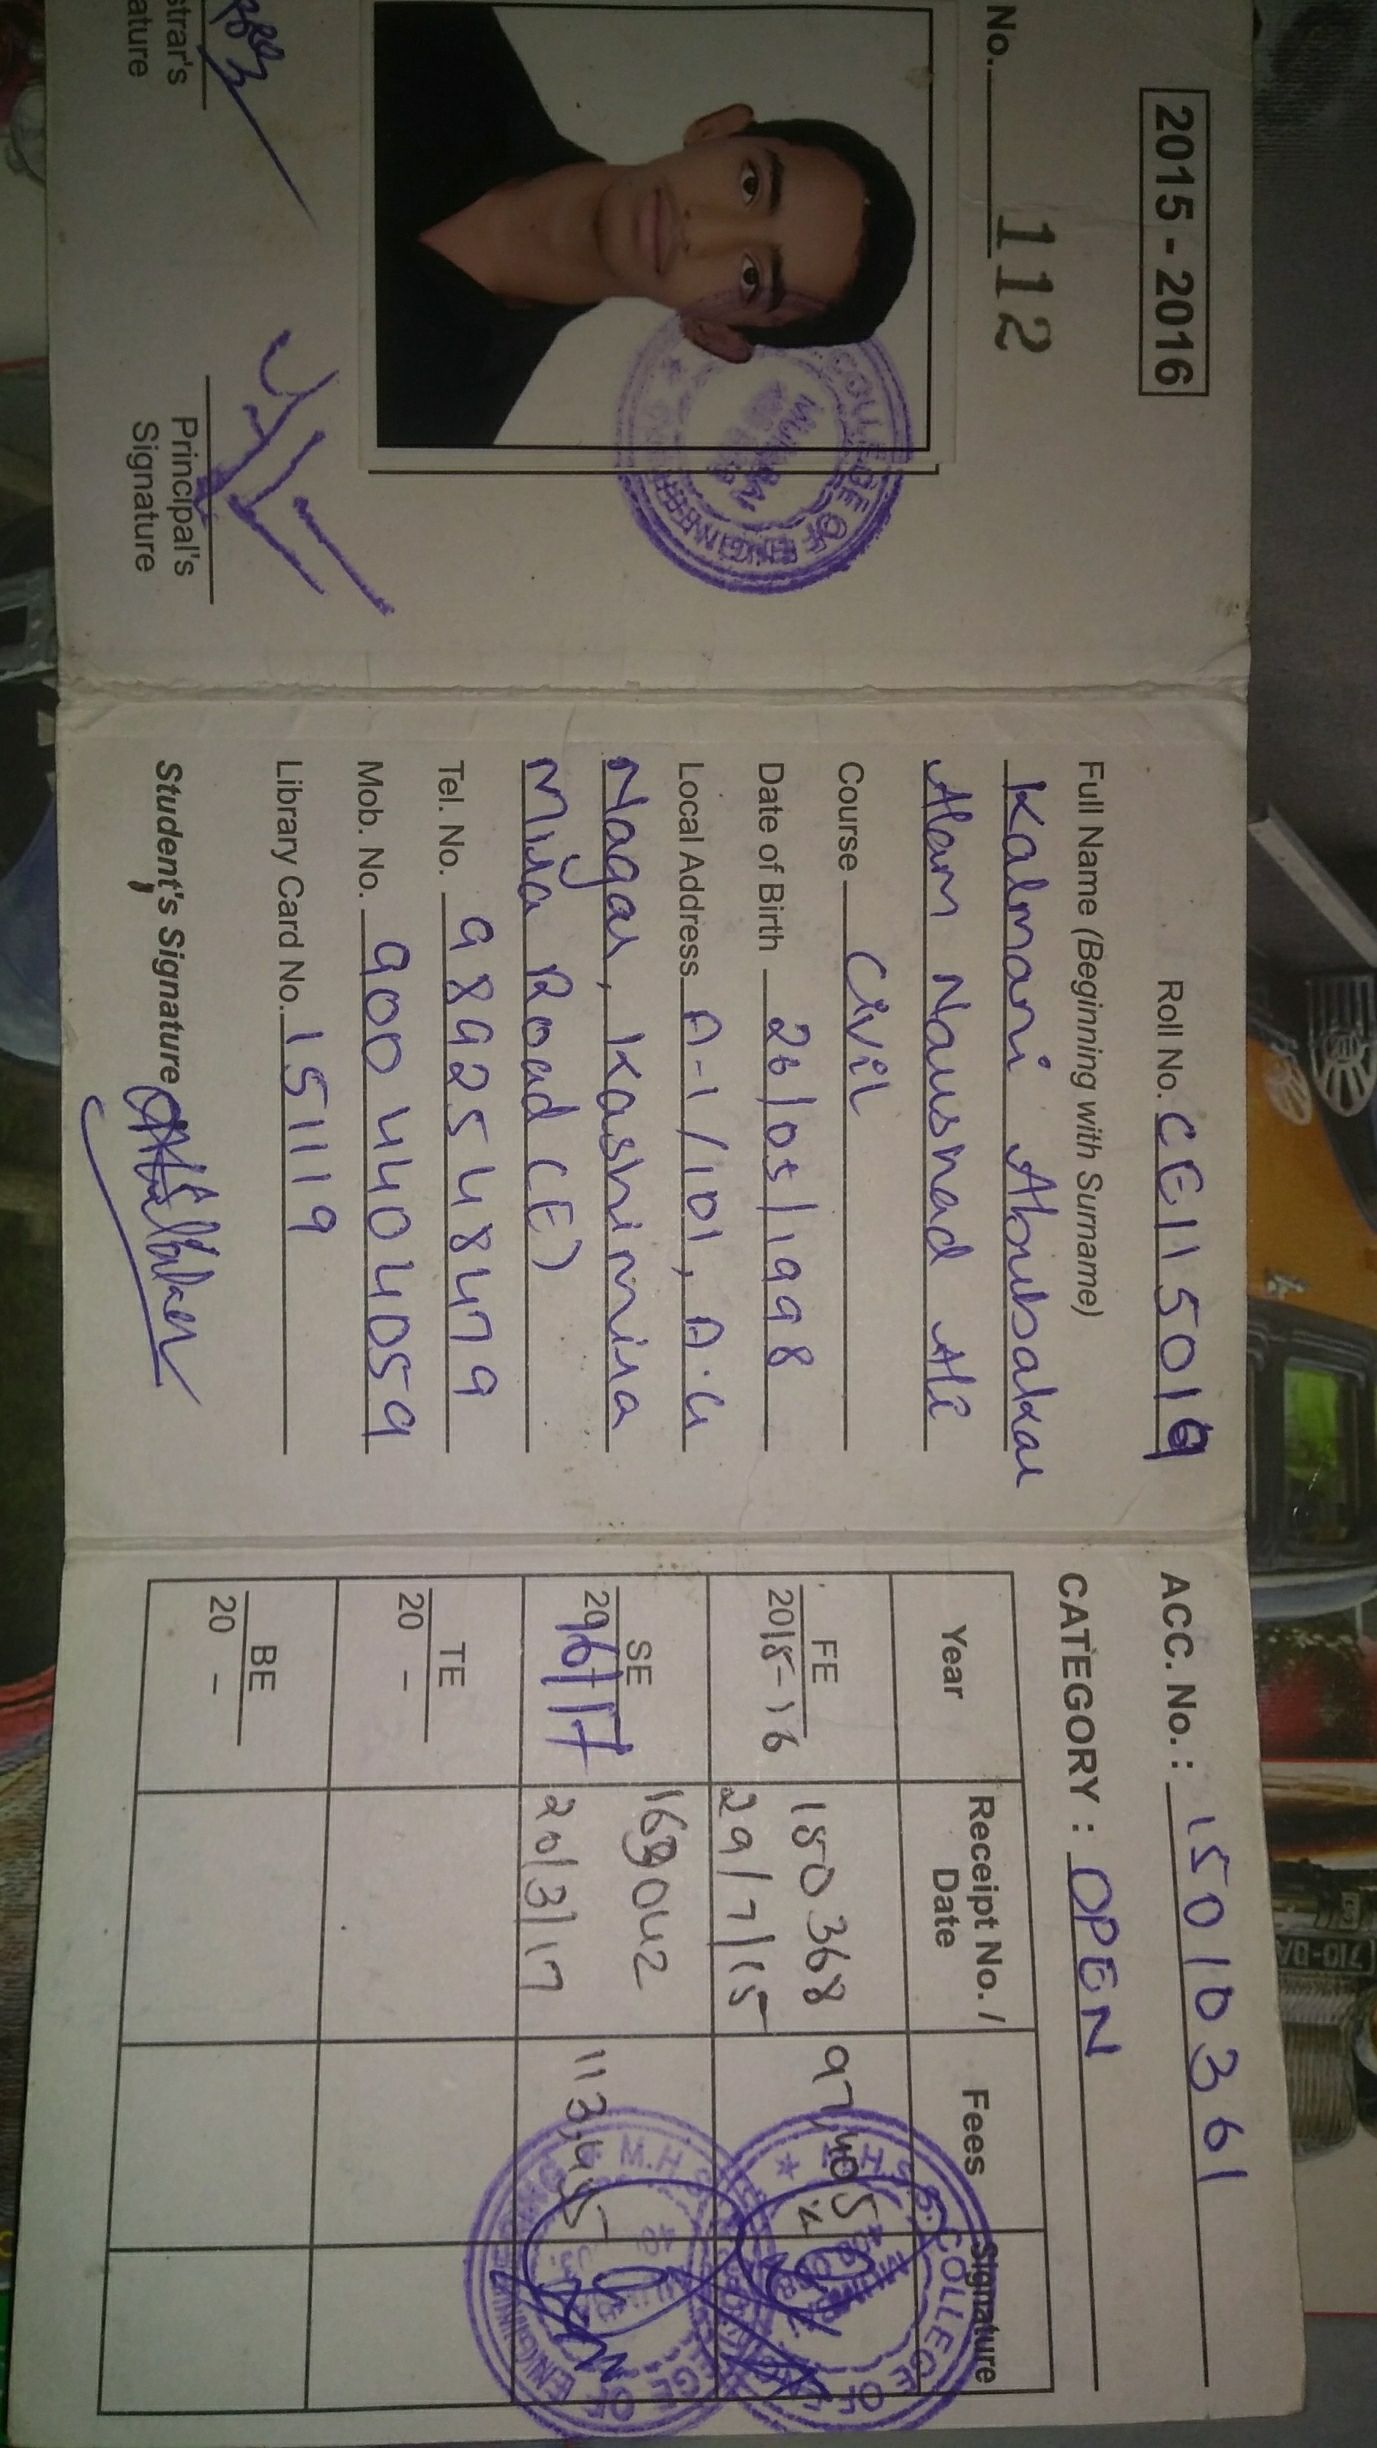 2015 - 2016
No. 112
strar's
ature
Principal's
Signature
COLLEGE OF ENGINEERING
Roll No. CE115019
Full Name (Beginning with Surname)
Kalmani Abubakar
Alam Naushad Ali
Course Civil
Date of Birth 26/05/1998
Local Address A-1/101, A.G
Nagar, Kashimira
Mira Road (E)
Tel. No. 9892548479
Mob. No. 9004404059
Library Card No. 151119
Student's Signature
ACC. No. : 15010361
CATEGORY : OPEN
Year Receipt No. / Date Fees Signature
FE 2015-16 150368 29/7/15 97,405
SE 2016/17 20/3/17
TE 20 -
BE 20 -
M.H.S.S. COLLEGE OF
M.H.S.S. COLLEGE OF ENGINEERING